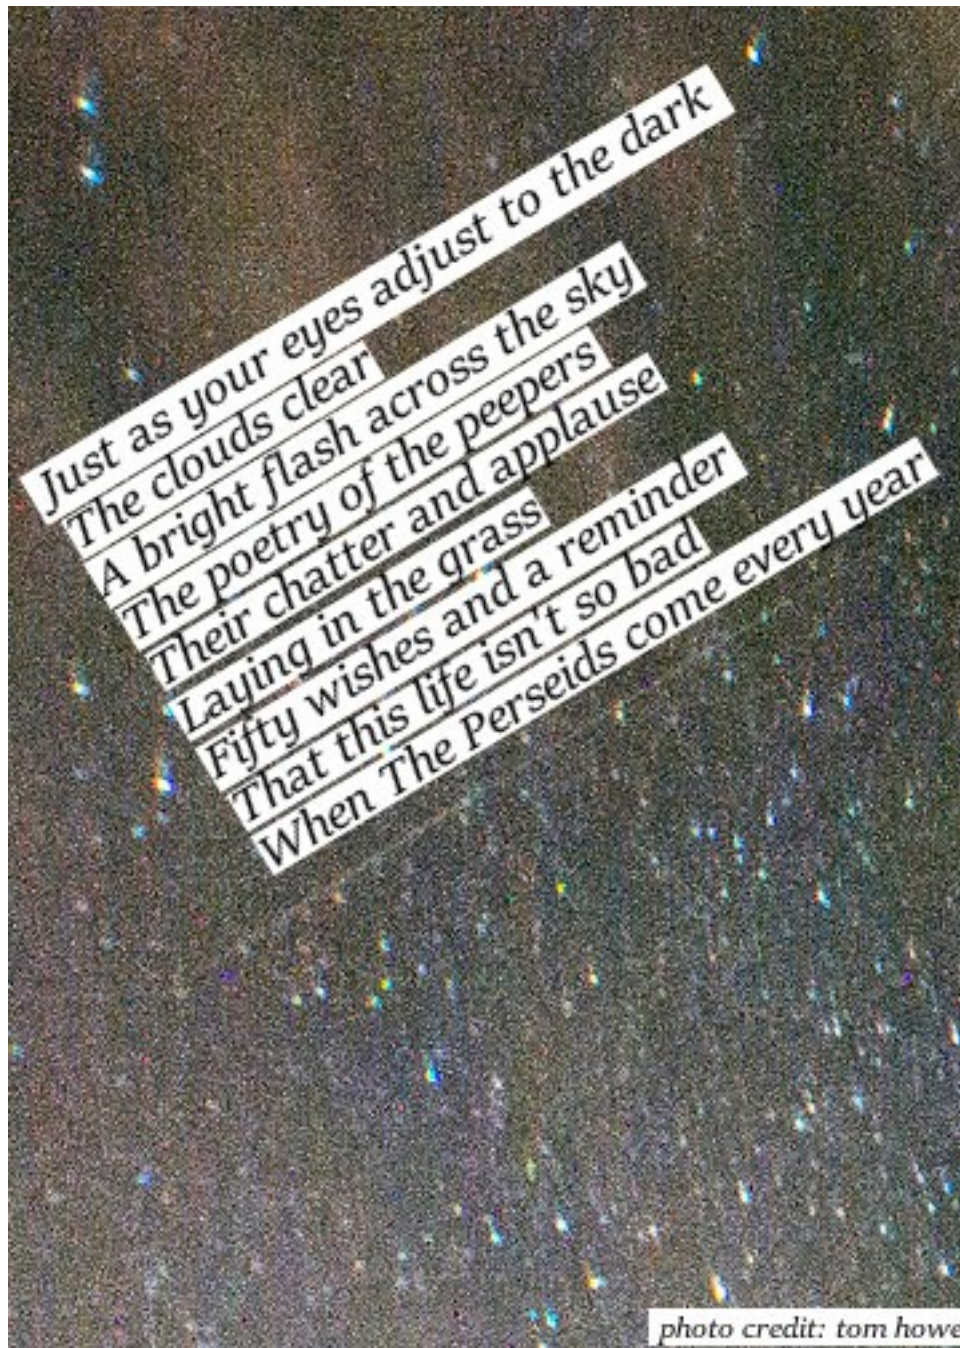 Just as your eyes adjust to the dark
The clouds clear
A bright flash across the sky
The poetry of the peepers
Their chatter and applause
Laying in the grass
Fifty wishes and a reminder
That this life isn't so bad
When The Perseids come every year
photo credit: tom howe